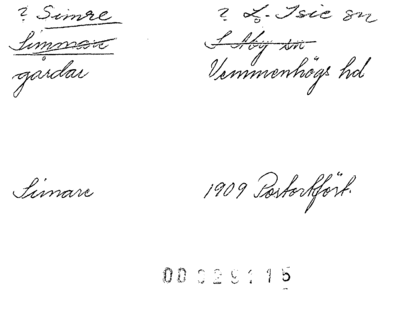 ? Simre ? L:a Isie sn
Simman S Åby sn
gårdar Vemmenhögs hd
Simare 1909 Postortfört.
00029115